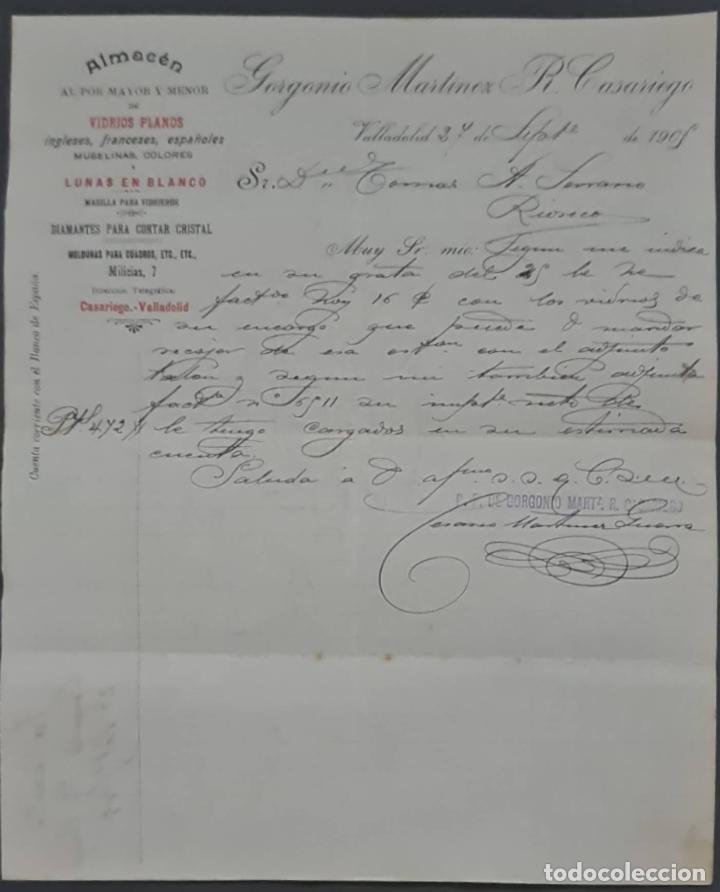 Almacén
AL POR MAYOR Y MENOR
DE
VIDRIOS PLANOS
ingleses, franceses, españoles
MUSELINAS, COLORES
Y
LUNAS EN BLANCO
MASILLA PARA VIDRIEROS
DIAMANTES PARA CORTAR CRISTAL
MOLDURAS PARA CUADROS, ETC., ETC.,
Milicias, 7
Dirección Telegráfica:
Casariego.-Valladolid
Cuenta corriente con el Banco de España.
Gorgonio Martinez R. Casariego
Valladolid 27 de Septe de 1905
Sr. Dn Tomas A. Serrano
Rioseco
Muy Sr. mio: Segun me indica
en su grata del 25 le he
factdo hoy 16 con los vidrios de
su encargo que puede V mandar
recojer de esa eston con el adjunto
talon y segun mi tambien adjunta
factra nº 6511 su impte neto
Pts 4,72 le tengo cargados en su estimada
cuenta.
Saluda á V afmo s. s. q.
P. P. DE GORGONIO MARTZ. R. CASARIEGO
Cesareo Martinez Guerra
todocoleccion